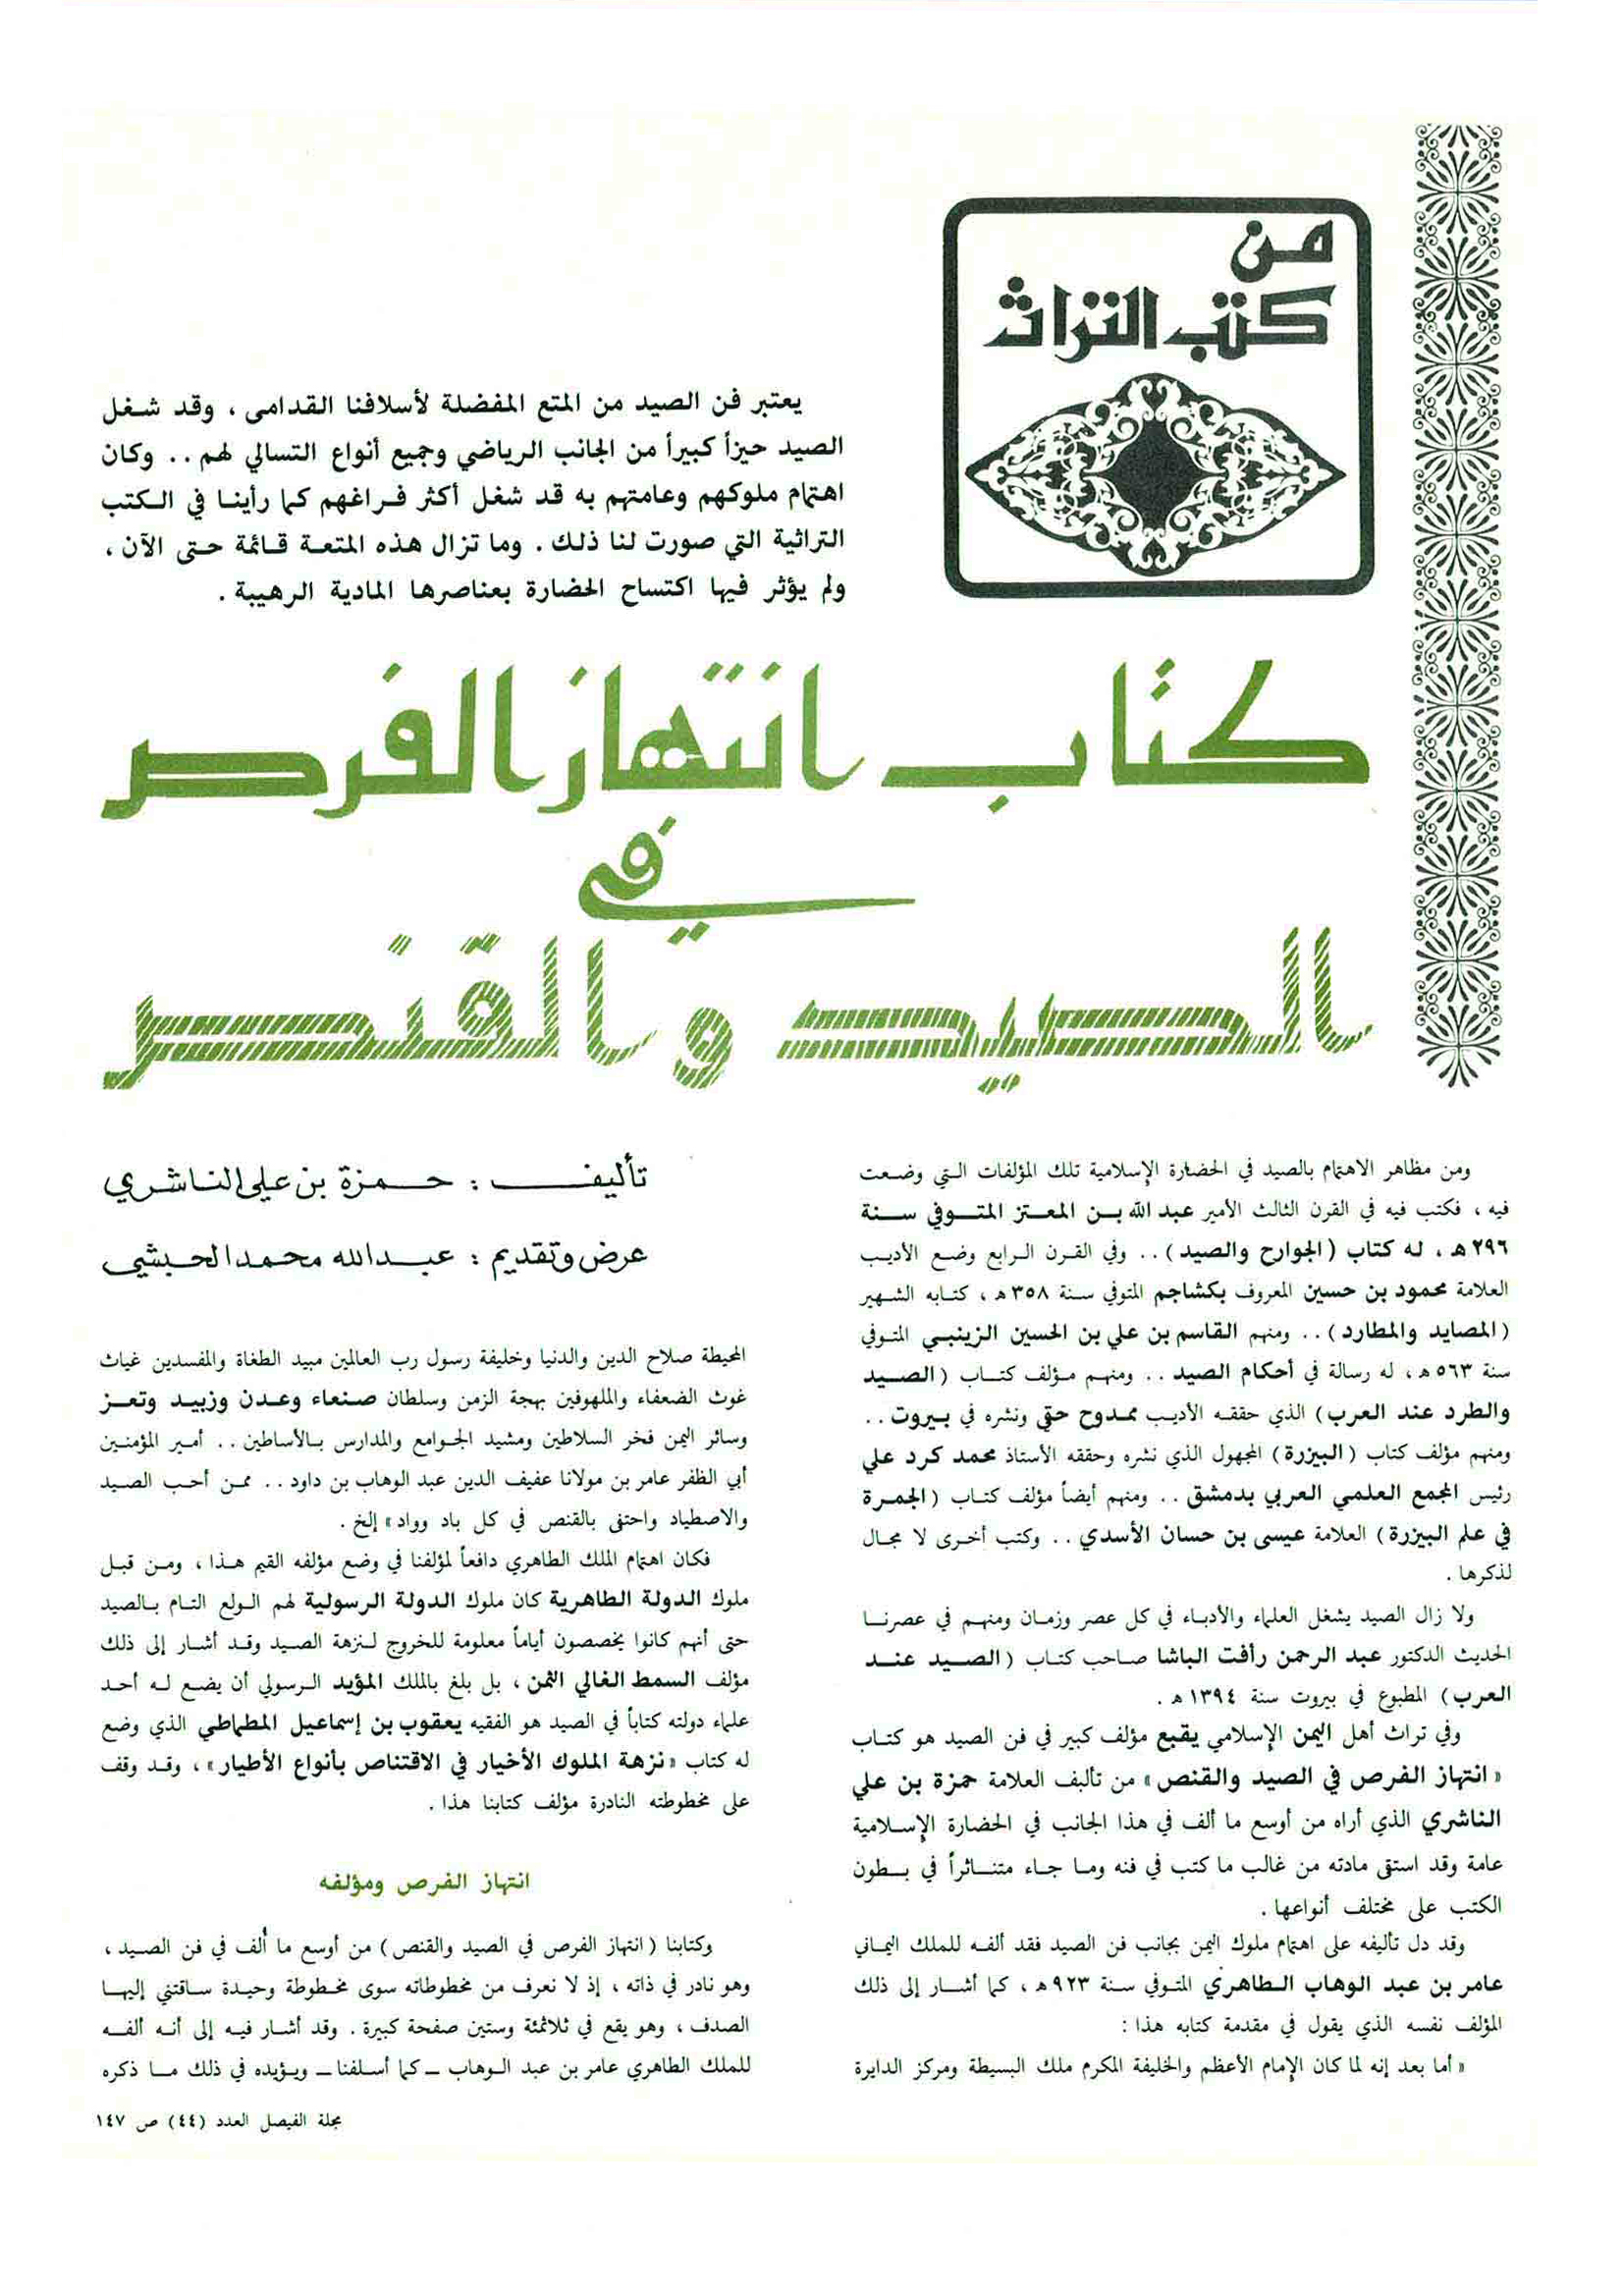 من
كتب التراث
يعتبر فن الصيد من المتع المفضلة لأسلافنا القدامى ، وقد شغل
الصيد حيزاً كبيراً من الجانب الرياضي وجميع أنواع التسالي لهم .. وكان
اهتمام ملوكهم وعامتهم به قد شغل أكثر فراغهم كما رأينا في الكتب
التراثية التي صورت لنا ذلك . وما تزال هذه المتعة قائمة حتى الآن ،
ولم يؤثر فيها اكتساح الحضارة بعناصرها المادية الرهيبة .
كتاب انتهاز الفرص
في
الصيد والقنص
تأليف : حمزة بن علي الناشري
عرض وتقديم : عبدالله محمد الحبشي
ومن مظاهر الاهتمام بالصيد في الحضارة الإسلامية تلك المؤلفات التي وضعت
فيه ، فكتب فيه في القرن الثالث الأمير عبد الله بن المعتز المتوفي سنة
٢٩٦ هـ ، له كتاب (الجوارح والصيد) .. وفي القرن الرابع وضع الأديب
العلامة محمود بن حسين المعروف بكشاجم المتوفي سنة ٣٥٨ هـ ، كتابه الشهير
(المصايد والمطارد) .. ومنهم القاسم بن علي بن الحسين الزينبي المتوفي
سنة ٥٦٣ هـ ، له رسالة في أحكام الصيد .. ومنهم مؤلف كتاب (الصيد
والطرد عند العرب) الذي حققه الأديب ممدوح حقي ونشره في بيروت ..
ومنهم مؤلف كتاب (البيزرة) المجهول الذي نشره وحققه الأستاذ محمد كرد علي
رئيس المجمع العلمي العربي بدمشق .. ومنهم أيضاً مؤلف كتاب (الجمرة
في علم البيزرة) العلامة عيسى بن حسان الأسدي .. وكتب أخرى لا مجال
لذكرها .
ولا زال الصيد يشغل العلماء والأدباء في كل عصر وزمان ومنهم في عصرنا
الحديث الدكتور عبد الرحمن رأفت الباشا صاحب كتاب (الصيد عند
العرب) المطبوع في بيروت سنة ١٣٩٤ هـ .
وفي تراث أهل اليمن الإسلامي يقبع مؤلف كبير في فن الصيد هو كتاب
« انتهاز الفرص في الصيد والقنص » من تأليف العلامة حمزة بن علي
الناشري الذي أراه من أوسع ما ألف في هذا الجانب في الحضارة الإسلامية
عامة وقد استقى مادته من غالب ما كتب في فنه وما جاء متناثراً في بطون
الكتب على مختلف أنواعها .
وقد دل تأليفه على اهتمام ملوك اليمن بجانب فن الصيد فقد ألفه للملك اليماني
عامر بن عبد الوهاب الطاهري المتوفي سنة ٩٢٣ هـ ، كما أشار إلى ذلك
المؤلف نفسه الذي يقول في مقدمة كتابه هذا :
« أما بعد إنه لما كان الإمام الأعظم والخليفة المكرم ملك البسيطة ومركز الدايرة
المحيطة صلاح الدين والدنيا وخليفة رسول رب العالمين مبيد الطغاة والمفسدين غياث
غوث الضعفاء والملهوفين بهجة الزمن وسلطان صنعاء وعدن وزبيد وتعز
وسائر اليمن فخر السلاطين ومشيد الجوامع والمدارس بالأساطين .. أمير المؤمنين
أبي الظفر عامر بن مولانا عفيف الدين عبد الوهاب بن داود .. ممن أحب الصيد
والاصطياد واحتفى بالقنص في كل باد وواد » إلخ .
فكان اهتمام الملك الطاهري دافعاً لمؤلفنا في وضع مؤلفه القيم هذا ، ومن قبل
ملوك الدولة الطاهرية كان ملوك الدولة الرسولية لهم الولع التام بالصيد
حتى أنهم كانوا يخصصون أياماً معلومة للخروج لنزهة الصيد وقد أشار إلى ذلك
مؤلف السمط الغالي الثمن ، بل بلغ بالملك المؤيد الرسولي أن يضع له أحد
علماء دولته كتاباً في الصيد هو الفقيه يعقوب بن إسماعيل المطماطي الذي وضع
له كتاب « نزهة الملوك الأخيار في الاقتناص بأنواع الأطيار » ، وقد وقف
على مخطوطته النادرة مؤلف كتابنا هذا .
انتهاز الفرص ومؤلفه
وكتابنا (انتهاز الفرص في الصيد والقنص) من أوسع ما ألف في فن الصيد ،
وهو نادر في ذاته ، إذ لا نعرف من مخطوطاته سوى مخطوطة وحيدة ساقتني إليها
الصدف ، وهو يقع في ثلاثمئة وستين صفحة كبيرة . وقد أشار فيه إلى أنه ألفه
للملك الطاهري عامر بن عبد الوهاب ــ كما أسلفنا ــ ويؤيده في ذلك ما ذكره
مجلة الفيصل العدد (٤٤) ص ١٤٧